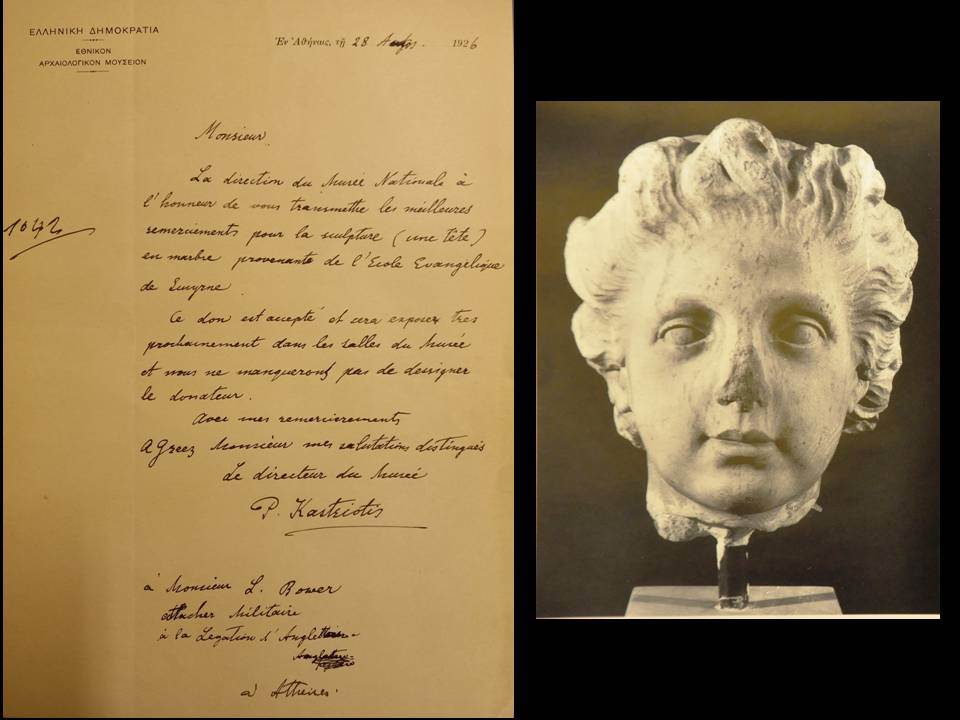 ΕΛΛΗΝΙΚΗ ΔΗΜΟΚΡΑΤΙΑ
ΕΘΝΙΚΟΝ
ΑΡΧΑΙΟΛΟΓΙΚΟΝ ΜΟΥΣΕΙΟΝ
Ἐν Ἀθήναις, τῇ 28 1926
Monsieur
La direction du Musée Nationale à
l'honneur de vous transmettre les meilleures
remerciements pour la sculpture (une tête)
en marbre provenante de l'Ecole Evangélique
de Smyrne
Ce don est accepté et sera exposer tres
prochainement dans les salles du Musée
et nous ne manquerons pas de designer
le donateur.
Avec mes remerciements
AGreez Monsieur mes salutations distingués
Le directeur du Musée
P. Kastriotis
à Monsieur L. Bower
attacher Militaire
à la Legation d'Angleterre
à Athènes.